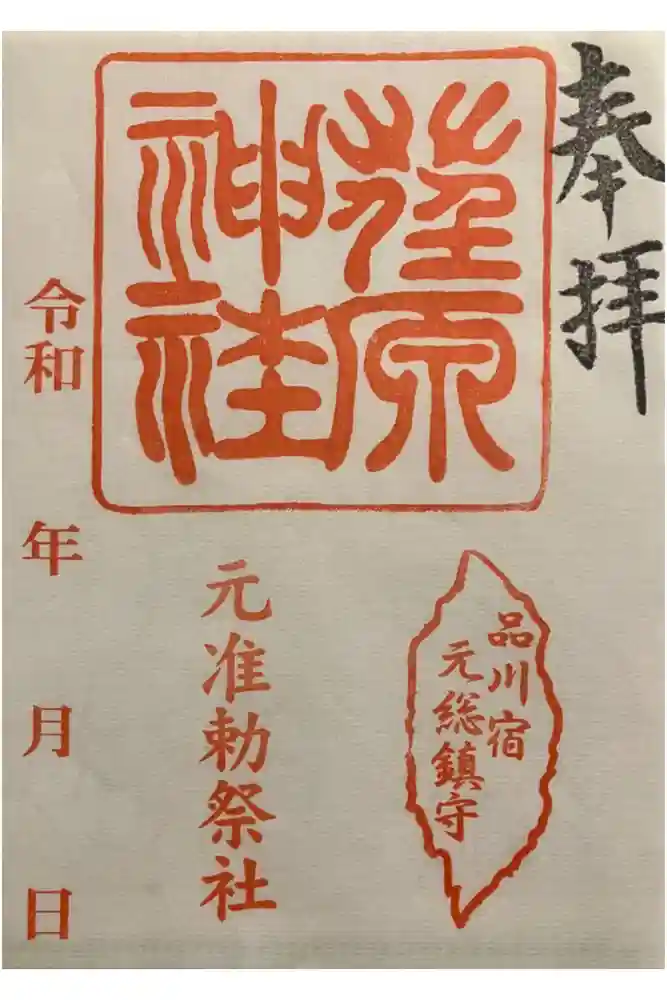 奉拝
荏原
神社
品川宿
元総鎮守
元准勅祭社
令和 年 月 日